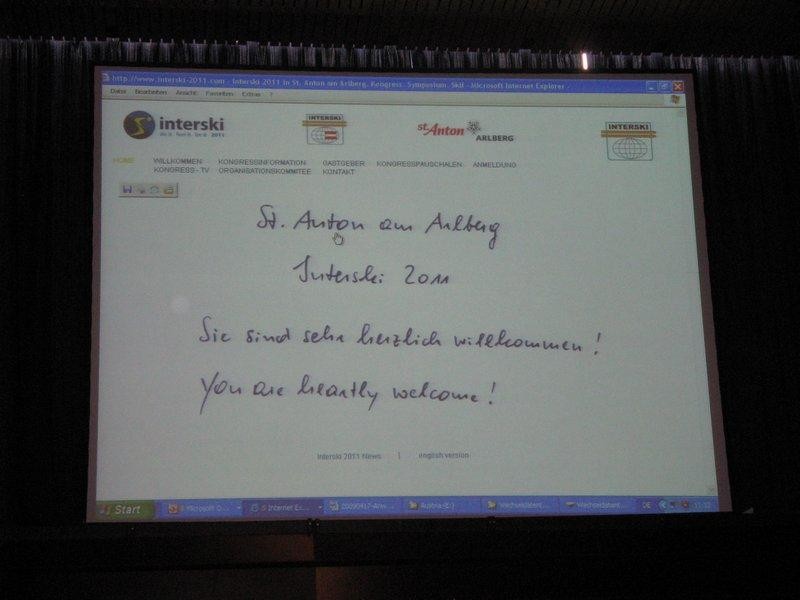 http://www.interski-2011.com - Interski 2011 in St. Anton am Arlberg. Kongress. Symposium. Skif - Microsoft Internet Explorer
Datei Bearbeiten Ansicht Favoriten Extras ?
interski
2011
INTERSKI
St.Anton ARLBERG
INTERSKI
HOME WILLKOMMEN KONGRESSINFORMATION GASTGEBER KONGRESSPAUSCHALEN ANMELDUNG
KONGRESS - TV ORGANISATIONSKOMMITEE KONTAKT
St. Anton am Arlberg
Interski 2011
Sie sind sehr herzlich willkommen!
You are heartly welcome!
Interski 2011 News | english version
Start 5 Microsoft O... 5 Internet Ex... Austria (E:) Wechseldatent... Wechseldatent... DE